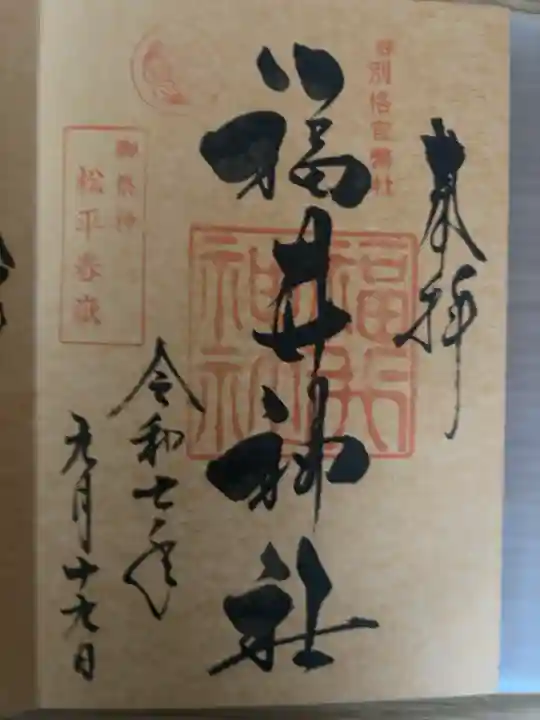 奉拝
舊別格官幣社
福井神社
福井
神社
御祭神
松平春嶽
令和七年
月十九日